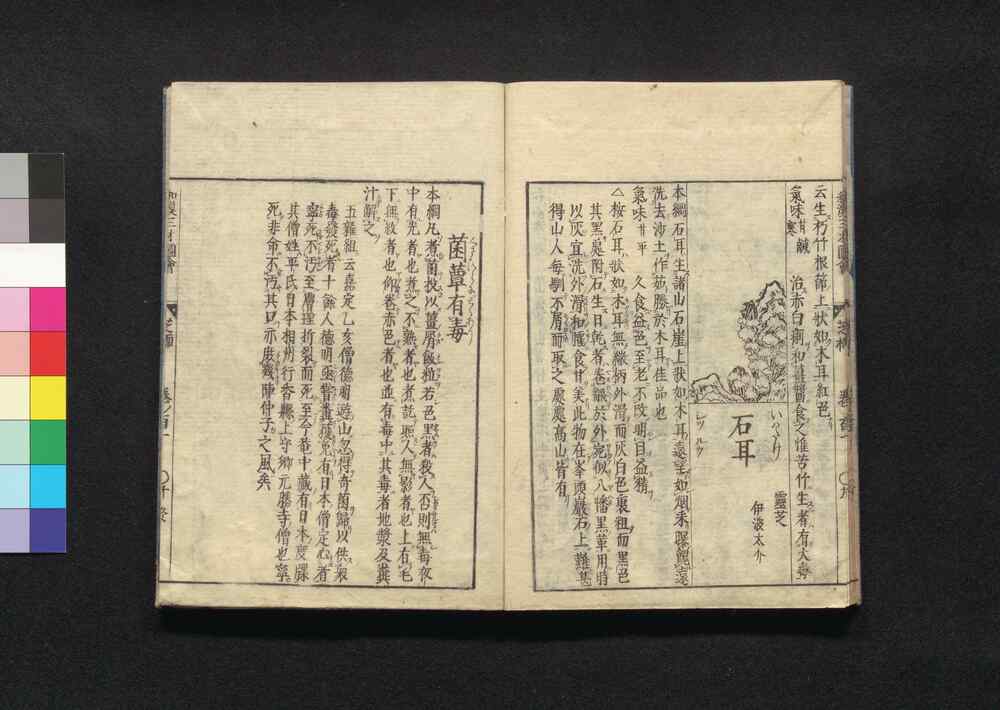 云生朽竹根節上狀如木耳紅色
氣味 甘鹹寒 治赤白痢和薑醬食之惟苦竹生者有大毒
石耳
いはたけ
シツルウ
靈芝
伊波太介
本綱石耳生諸山石崖上狀如木耳遠望如烟采曝饋遠
洗去沙土作茹勝於木耳佳品也
氣味 甘平 久食益色至老不改明目益精
△按石耳狀如木耳無繖柄外滑而灰白色裏粗而黑色
其黑處附石生日乾者卷皺於外宛似八幡黑革用時
以灰宜洗外滑和醋食甘美此物在峯頭巖石上難甚
得山人每剝不屑而取之處處高山皆有
菌蕈有毒
本綱凡煮菌投以薑屑飯粒若色黑者殺人否則無毒夜
中有光者也煮之不熟者也煮訖照人無影者也上有毛
下無紋者也仰卷赤色者也並有毒中其毒者地漿及糞
汁解之
五雜組云嘉定乙亥僧德明遊山忽得奇菌歸以供衆
毒發死者十餘人德明亟嘗糞獲免有日本僧定心者
寧死不汚至膚理拆裂而死至今菴中藏有日本度牒
其僧姓平氏日本相州行香縣上守鄉元勝寺僧也寧
死非命不汚其口亦庶幾陳仲子之風矣
和漢三才圖會
芝栭
卷ノ百一